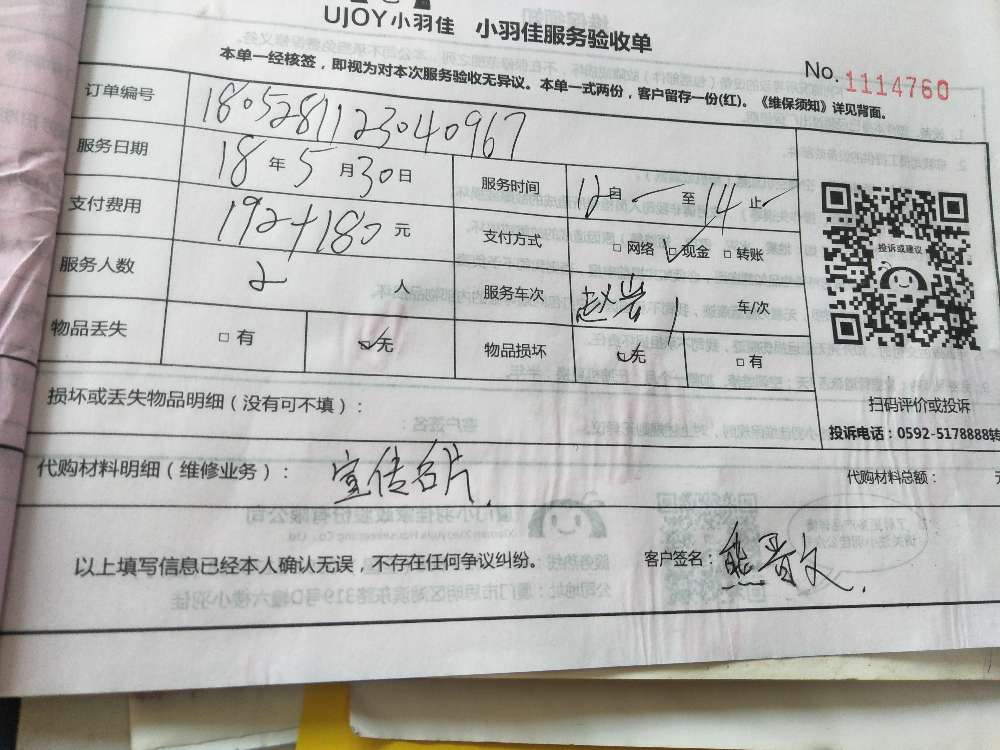 UJOY小羽佳 小羽佳服务验收单
本单一经核签，即视为对本次服务验收无异议。本单一式两份，客户留存一份(红)。《维保须知》详见背面。
No.1114760
订单编号 1805281123040967
服务日期 18年5月30日 服务时间 12自 至 14止
支付费用 192+180元 支付方式 □网络 ☑现金 □转账
服务人数 2人 服务车次 赵岩 1 车/次
物品丢失 □有 ☑无 物品损坏 ☑无 □有
投诉或建议
扫码评价或投诉
投诉电话：0592-5178888转
损坏或丢失物品明细（没有可不填）：
代购材料明细（维修业务）： 宣传名片 代购材料总额：
以上填写信息已经本人确认无误，不存在任何争议纠纷。 客户签名：熊晋文